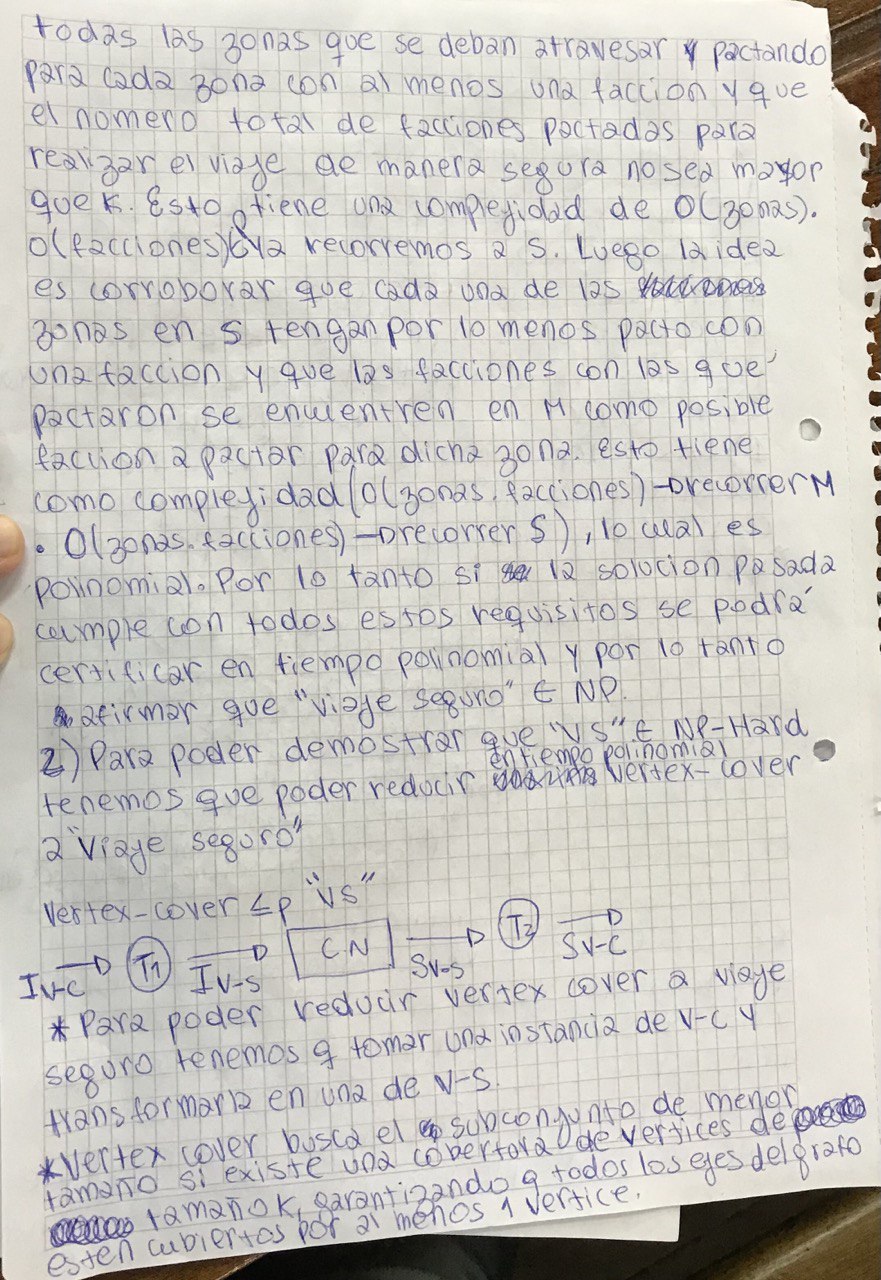 todas las zonas que se deban atravesar y pactando
para cada zona con al menos una faccion y que
el nomero total de facciones pactadas para
realizar el viaje de manera segura no sea mayor
que K. Esto tiene una complejidad de O(zonas).
O(facciones) ya recorremos a S. Luego la idea
es corroborar que cada una de las
zonas en S tengan por lo menos pacto con
una faccion y que las facciones con las que
pactaron se encuentren en M como posible
faccion a pactar para dicha zona. Esto tiene
como complejidad (O(zonas.facciones)→recorrer M
. O(zonas.facciones)→recorrer S), lo cual es
polinomial. Por lo tanto si la solucion pasada
cumple con todos estos requisitos se podrá
certificar en tiempo polinomial y por lo tanto
afirmar que "viaje seguro" ∈ NP.
2) Para poder demostrar que "VS" ∈ NP-Hard
en tiempo polinomial
tenemos que poder reducir vertex-cover
a "viaje seguro"
Vertex-cover ≤p "VS"
IV-C → T1 → IV-S → CN → SV-S → T2 → SV-C
* Para poder reducir vertex cover a viaje
seguro tenemos q tomar una instancia de V-C y
transformarla en una de V-S.
* Vertex cover busca el subconjunto de menor
tamaño si existe una cobertura de vertices de
tamaño K, garantizando q todos los ejes del grafo
esten cubiertos por al menos 1 vertice.